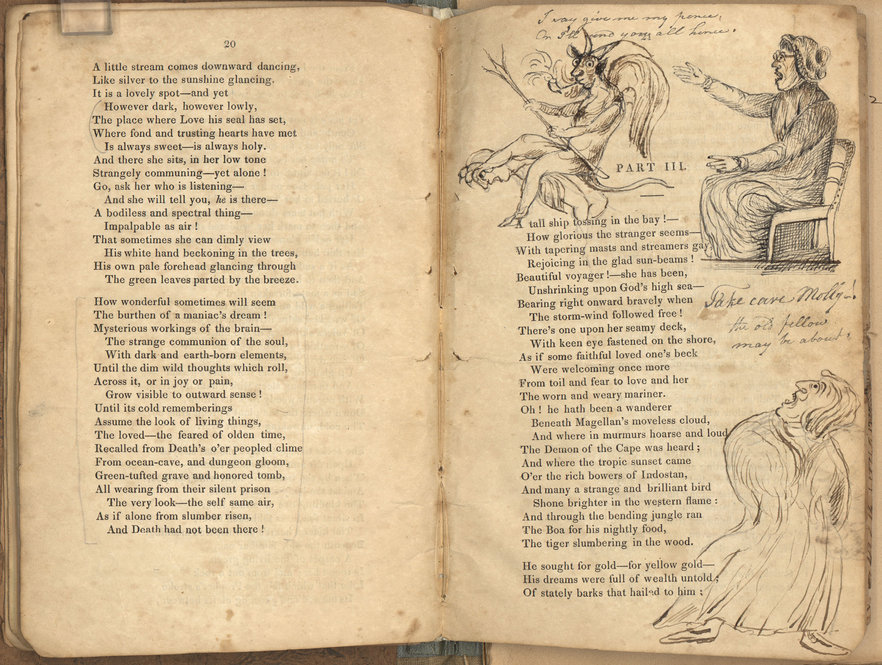 20
A little stream comes downward dancing,
Like silver to the sunshine glancing.
It is a lovely spot—and yet
However dark, however lowly,
The place where Love his seal has set,
Where fond and trusting hearts have met
Is always sweet—is always holy.
And there she sits, in her low tone
Strangely communing—yet alone !
Go, ask her who is listening—
And she will tell you, he is there—
A bodiless and spectral thing—
Impalpable as air !
That sometimes she can dimly view
His white hand beckoning in the trees,
His own pale forehead glancing through
The green leaves parted by the breeze.
How wonderful sometimes will seem
The burthen of a maniac's dream !
Mysterious workings of the brain—
The strange communion of the soul,
With dark and earth-born elements,
Until the dim wild thoughts which roll,
Across it, or in joy or pain,
Grow visible to outward sense !
Until its cold rememberings
Assume the look of living things,
The loved—the feared of olden time,
Recalled from Death's o'er peopled clime
From ocean-cave, and dungeon gloom,
Green-tufted grave and honored tomb,
All wearing from their silent prison
The very look—the self same air,
As if alone from slumber risen,
And Death had not been there !
I say give me my pence,
Or I'll send you all hence.
PART III.
A tall ship tossing in the bay !—
How glorious the stranger seems—
With tapering masts and streamers gay,
Rejoicing in the glad sun-beams !
Beautiful voyager !—she has been,
Unshrinking upon God's high sea—
Bearing right onward bravely when
The storm-wind followed free !
There's one upon her seamy deck,
With keen eye fastened on the shore,
As if some faithful loved one's beck
Were welcoming once more
From toil and fear to love and her
The worn and weary mariner.
Oh ! he hath been a wanderer
Beneath Magellan's moveless cloud,
And where in murmurs hoarse and loud
The Demon of the Cape was heard ;
And where the tropic sunset came
O'er the rich bowers of Indostan,
And many a strange and brilliant bird
Shone brighter in the western flame :
And through the bending jungle ran
The Boa for his nightly food,
The tiger slumbering in the wood.
He sought for gold—for yellow gold—
His dreams were full of wealth untold ;
Of stately barks that hailed to him ;
Take care Molly—!
the old fellow
may be about.
2